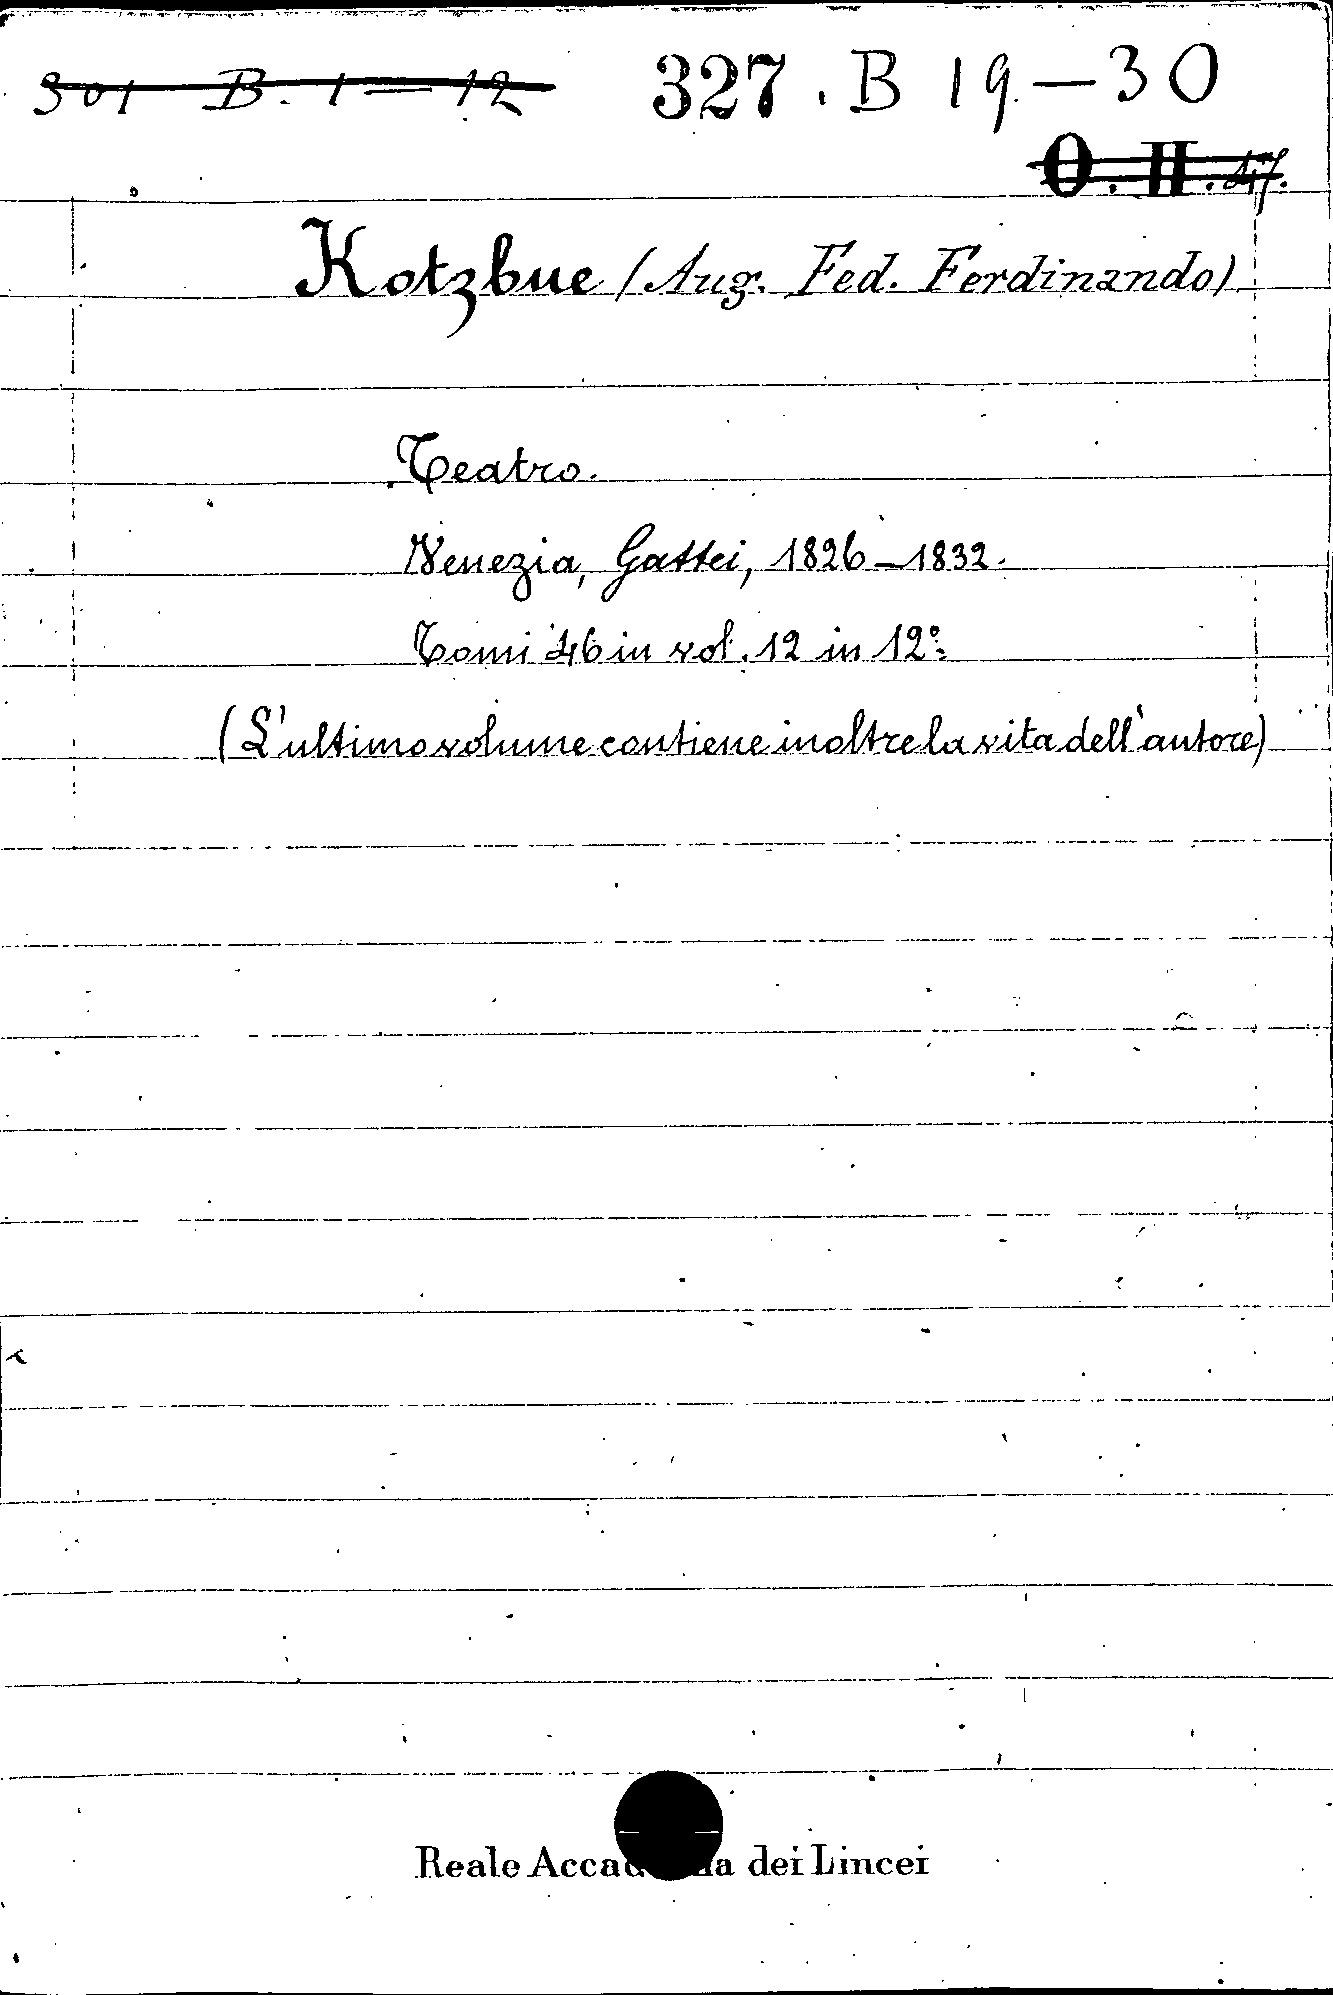 301 B. 1 — 12 327. B 19 — 30
O. II. 47.
Kotzbue (Aug. Fed. Ferdinando)
Teatro.
Venezia, Gattei, 1826 – 1832.
Tomi 46 in vol. 12 in 12°.
(L'ultimo volume contiene inoltre la vita dell'autore)
Reale Accad ia dei Lincei